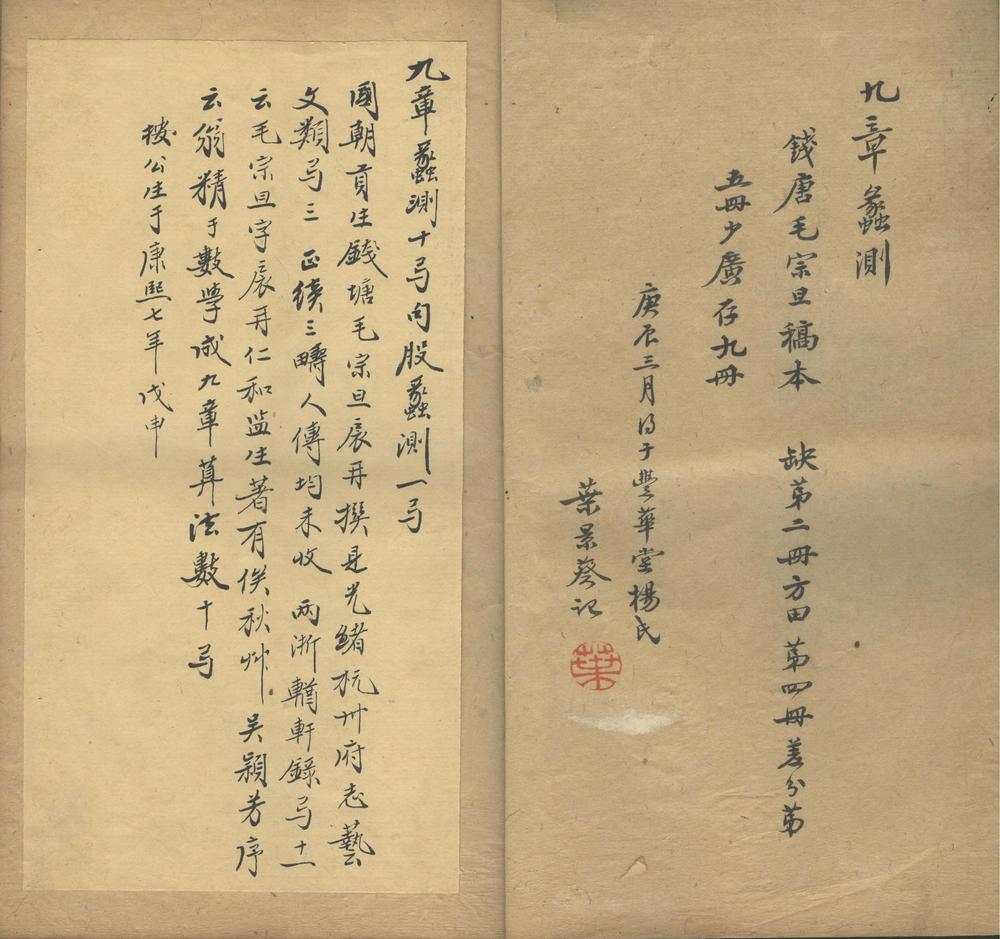 九章蠡測
錢唐毛宗旦稿本　缺第二冊方田第四冊差分第
五冊少廣存九冊
庚辰三月得于豐華堂楊氏
葉景葵記
葉
九章蠡測十弓句股蠡測一弓
國朝貢生錢塘毛宗旦扆再撰見光緒杭州府志藝
文類弓三　正續三疇人傳均未收　兩浙輶軒錄弓十一
云毛宗旦字扆再仁和監生著有俟秋艸　吳顥芳序
云翁精于數學成九章算法數十弓
按公生于康熙七年戊申